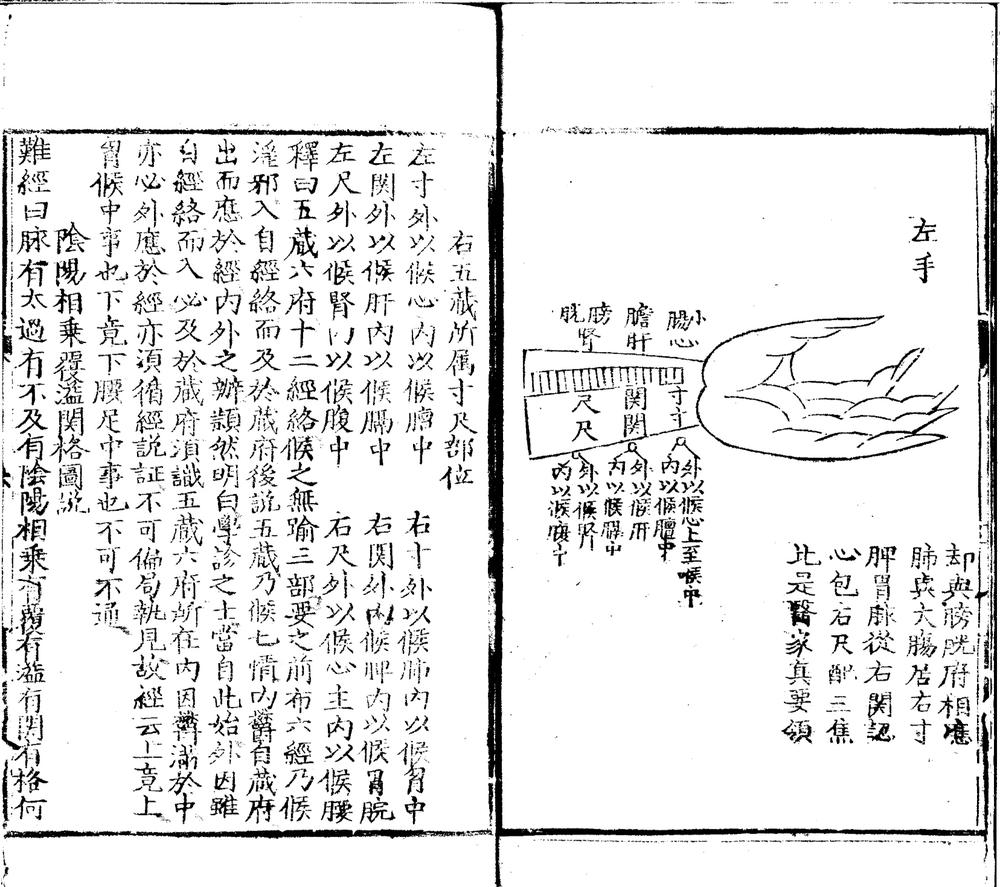 左手
小腸心
膽肝
膀胱腎
寸寸
関関
尺尺
外以候心上至喉中
內以候膻中
外以候肝
內以候膈中
外以候腎
內以候腹中
却與膀胱府相應
肺與大腸居右寸
脾胃脉從右関認
心包右尺配三焦
此是醫家真要領
右五蔵所属寸尺部位
左寸外以候心內以候膻中　右寸外以候肺內以候胷中
左関外以候肝內以候膈中　右関外以候脾內以候胃脘
左尺外以候腎內以候腹中　右尺外以候心主內以候腰
釋曰五蔵六府十二經絡候之無踰三部要之前布六經乃候
淫邪入自經絡而及於蔵府後説五蔵乃候七情內欝自蔵府
出而應於經內外之辨頴然明白學診之士當自此始外因雖
自經絡而入必及於蔵府湏識五蔵六府所在內因欝滿於中
亦必外應於經亦須循經説証不可偏局執見故經云上竟上
胷候中事也下竟下腰足中事也不可不通
陰陽相乗覆溢関格圖説
難經曰脉有太過有不及有陰陽相乗有覆有溢有関有格何